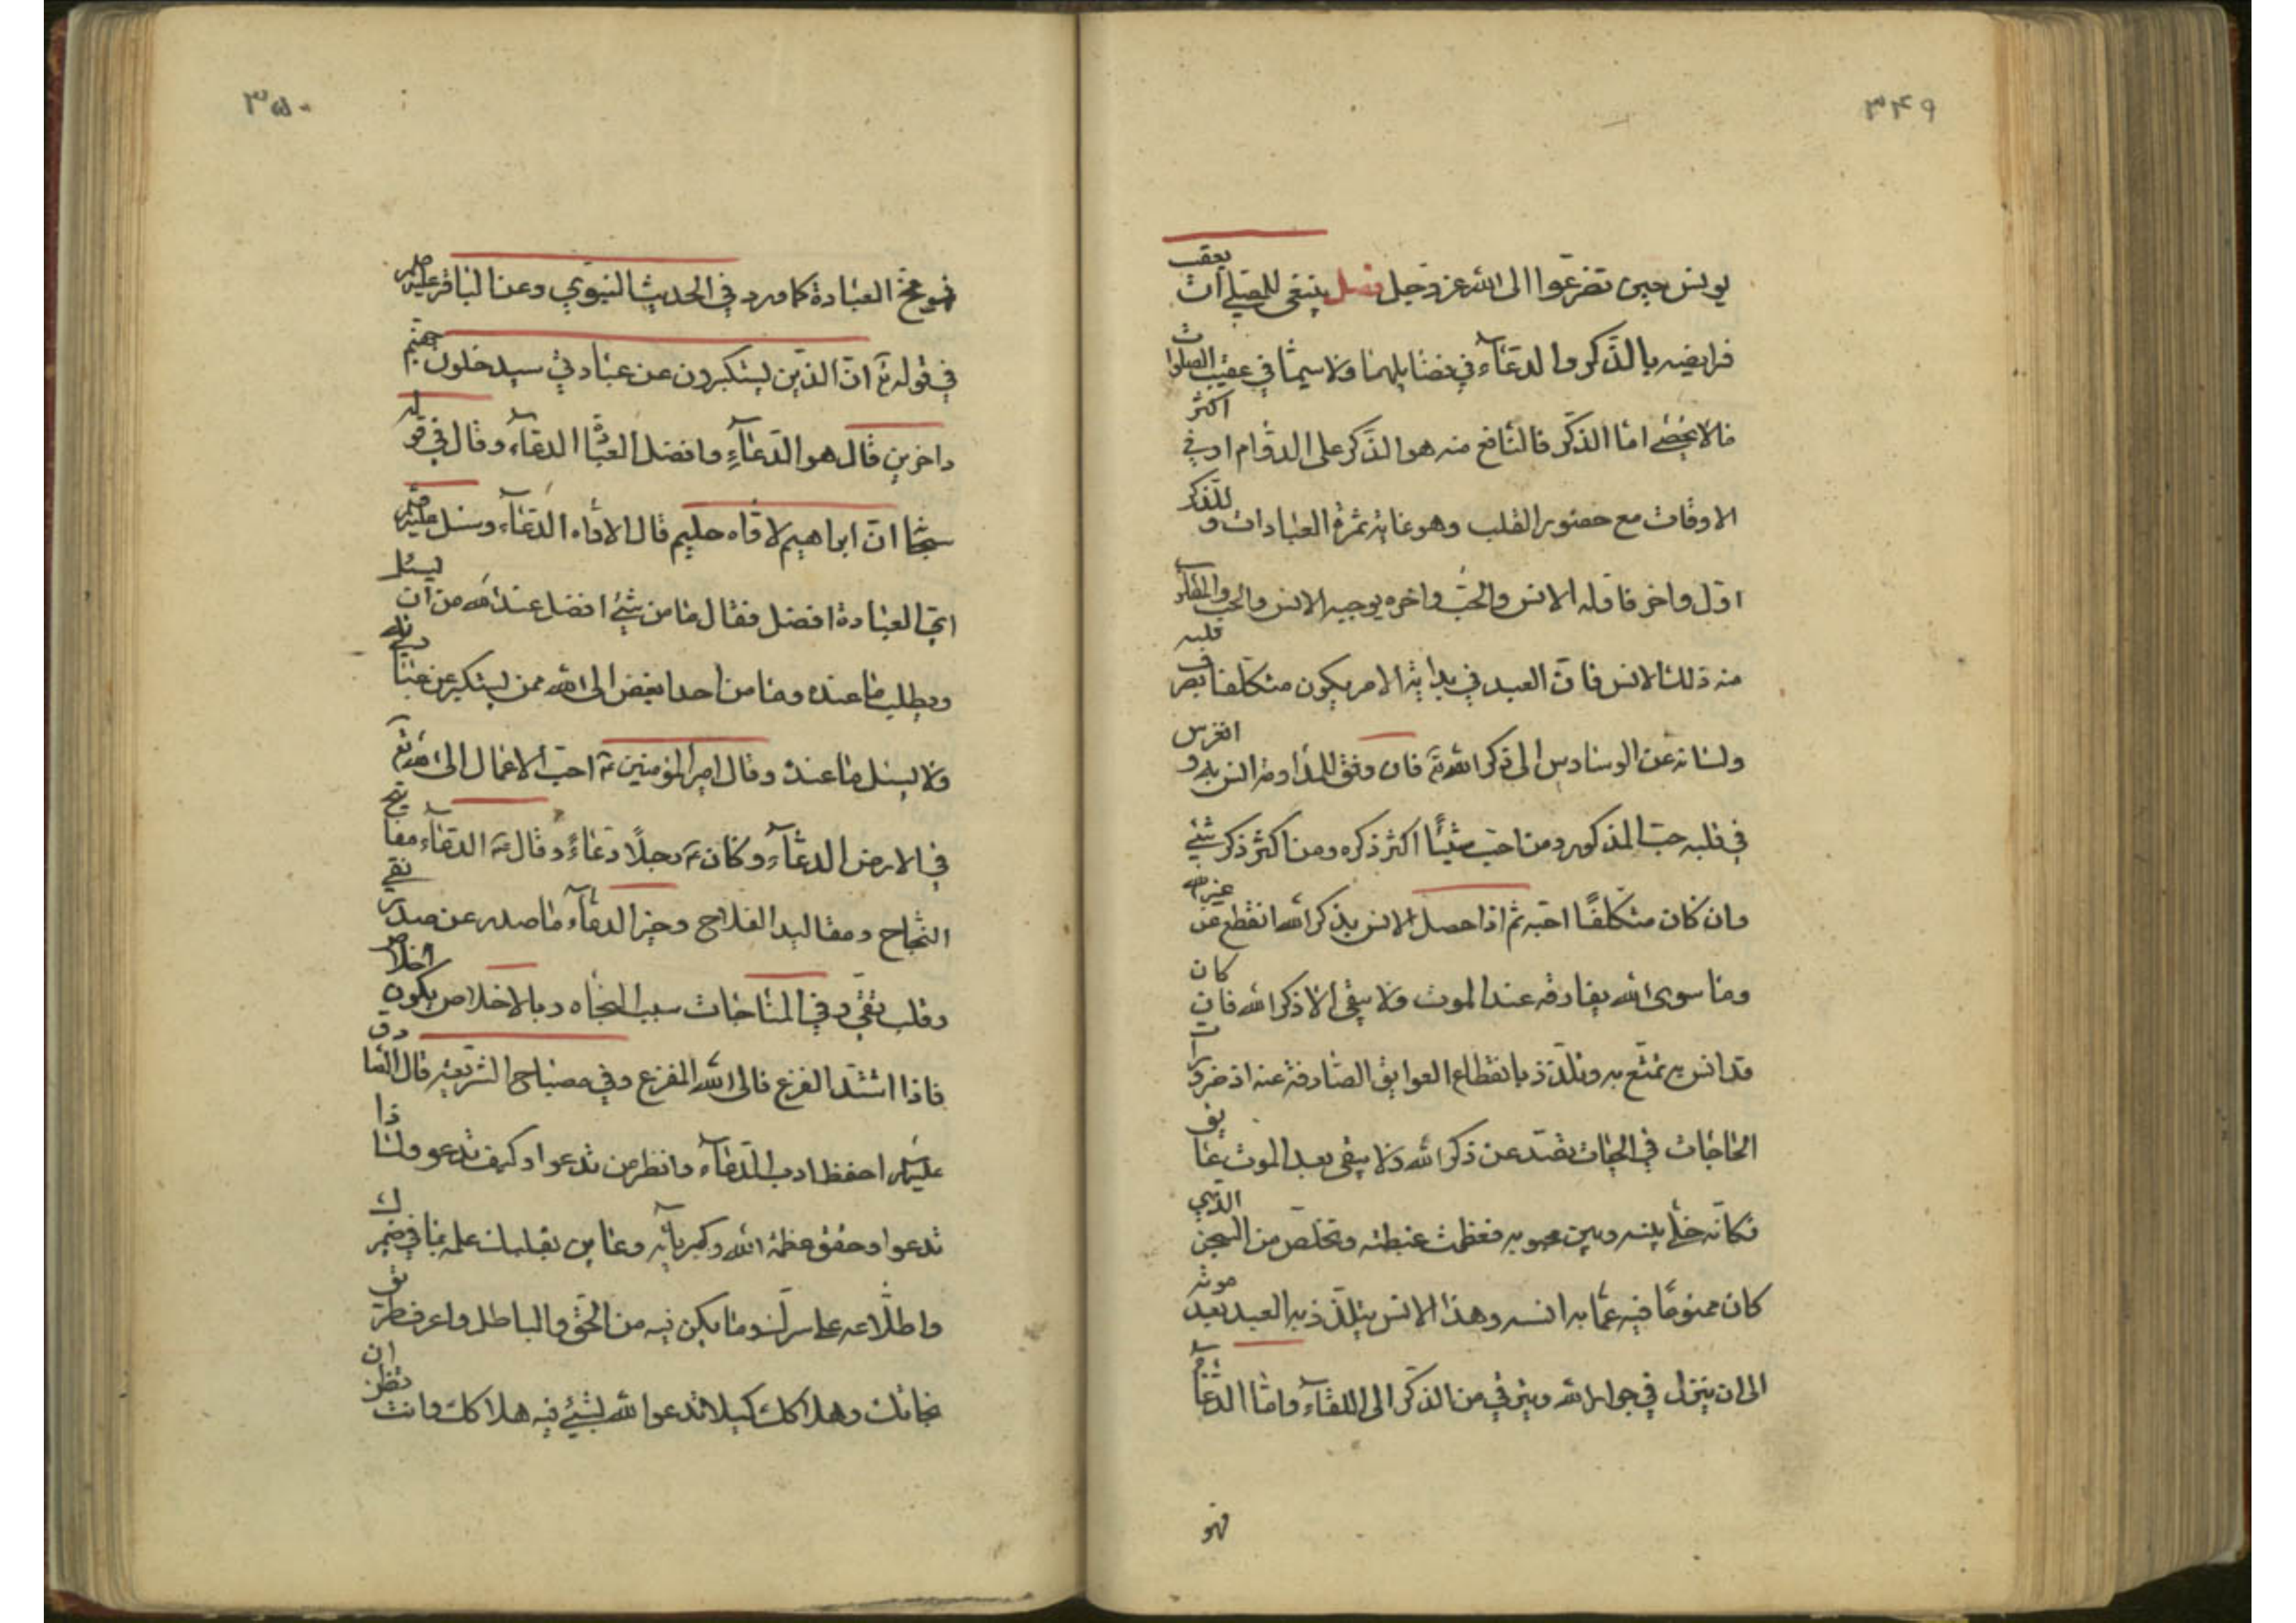 ٣٤٩
يونس حين تضرّعوا الى الله عز وجل فصل ينبغى للمصلى ان يعقب
فرايضه بالذّكر والدعآء ففى فضايلهما ولا سيمّا فى عقيب الصلوات
مالا يحصى امّا الذكر فالنافع منه هو الذّكر على الدوام او فى اكثر
الاوقات مع حضور القلب وهو غاية ثمرة العبادات و للذكر
اوّل واخر فاوّله الانس والحبّ واخره يوجبه الانس والحب والمطلوب
منه ذلك الانس فانّ العبد فى بداية الامر يكون متكلّفا بصرف قلبه
ولسانه عن الوساوس الى ذكر الله تعـ فان وفق للمداومة انس به و انغرس
فى قلبه حبّ المذكور ومن احبّ شيئًا اكثر ذكره ومن اكثر ذكر شيئ
وان كان متكلّفًا احبّه ثم اذا حصل الانس بذكر الله انقطع عن غير الله
وما سوى الله يفارقه عند الموت ولا يبقى الا ذكر الله فان كان
قد انس به تمتّع به وتلذّذ بانقطاع العوايق الصّارفة عنه اذ ضرورات
الحاجات فى الحيات تصدّ عن ذكر الله ولا يبقى بعد الموت عايق
فكانّه خلّى بينه وبين محبوبه فعظمت غبطته وتخلّص من السجن الذى
كان ممنوعًا فيه عمّا به انسه وهذا الانس يتلذّذ به العبد بعد موته
الى ان ينزل فى جوار الله ويترقى من الذكر الى اللقآء وامّا الدعآء
فهو
٣٥٠
فهو مخّ العبادة كما ورد فى الحديث النبوى وعن الباقر عليه السلم
فى قوله تعـ انّ الذين يستكبرون عن عبادتى سيدخلون جهنّم
داخرين قال هو الدّعآء وافضل العبادة الدعآء وقال فى قوله
سبحانه انّ ابراهيم لاوّاه حليم قال الاوّاه الدّعآء وسئل عليه السلم
اىّ العبادة افضل فقال ما من شيئ افضل عند الله من ان يسئل
ويطلب ما عنده وما من احد ابغض الى الله ممن يستكبر عن عبادته
ولا يسئل ما عنده وقال امير المؤمنين ع احبّ الاعمال الى الله تعـ
فى الارض الدعآء وكان ع رجلًا دعّاءً وقال ع الدعآء مفاتيح
النّجاح ومقاليد الفلاح وخير الدعآء ما صدر عن صدر نقى
وقلب تقى وفى المناجات سبب النجاه وبالاخلاص يكون الخلاص
فاذا اشتدّ الفزع فالى الله المفزع وفى مصباح الشريعة قال الصادق
عليه السلم احفظ ادب الدعآء وانظر من تدعوا وكيف تدعو ولماذا
تدعوا وحقق عظمة الله وكبريآئه وعاين بقلبك علمه بما فى ضميرك
واطّلاعه على سرّك وما يكن فيه من الحق والباطل واعرف طرق
نجاتك وهلاكك كيلا تدعوا الله بشيئ فيه هلاكك وانت تظن ان